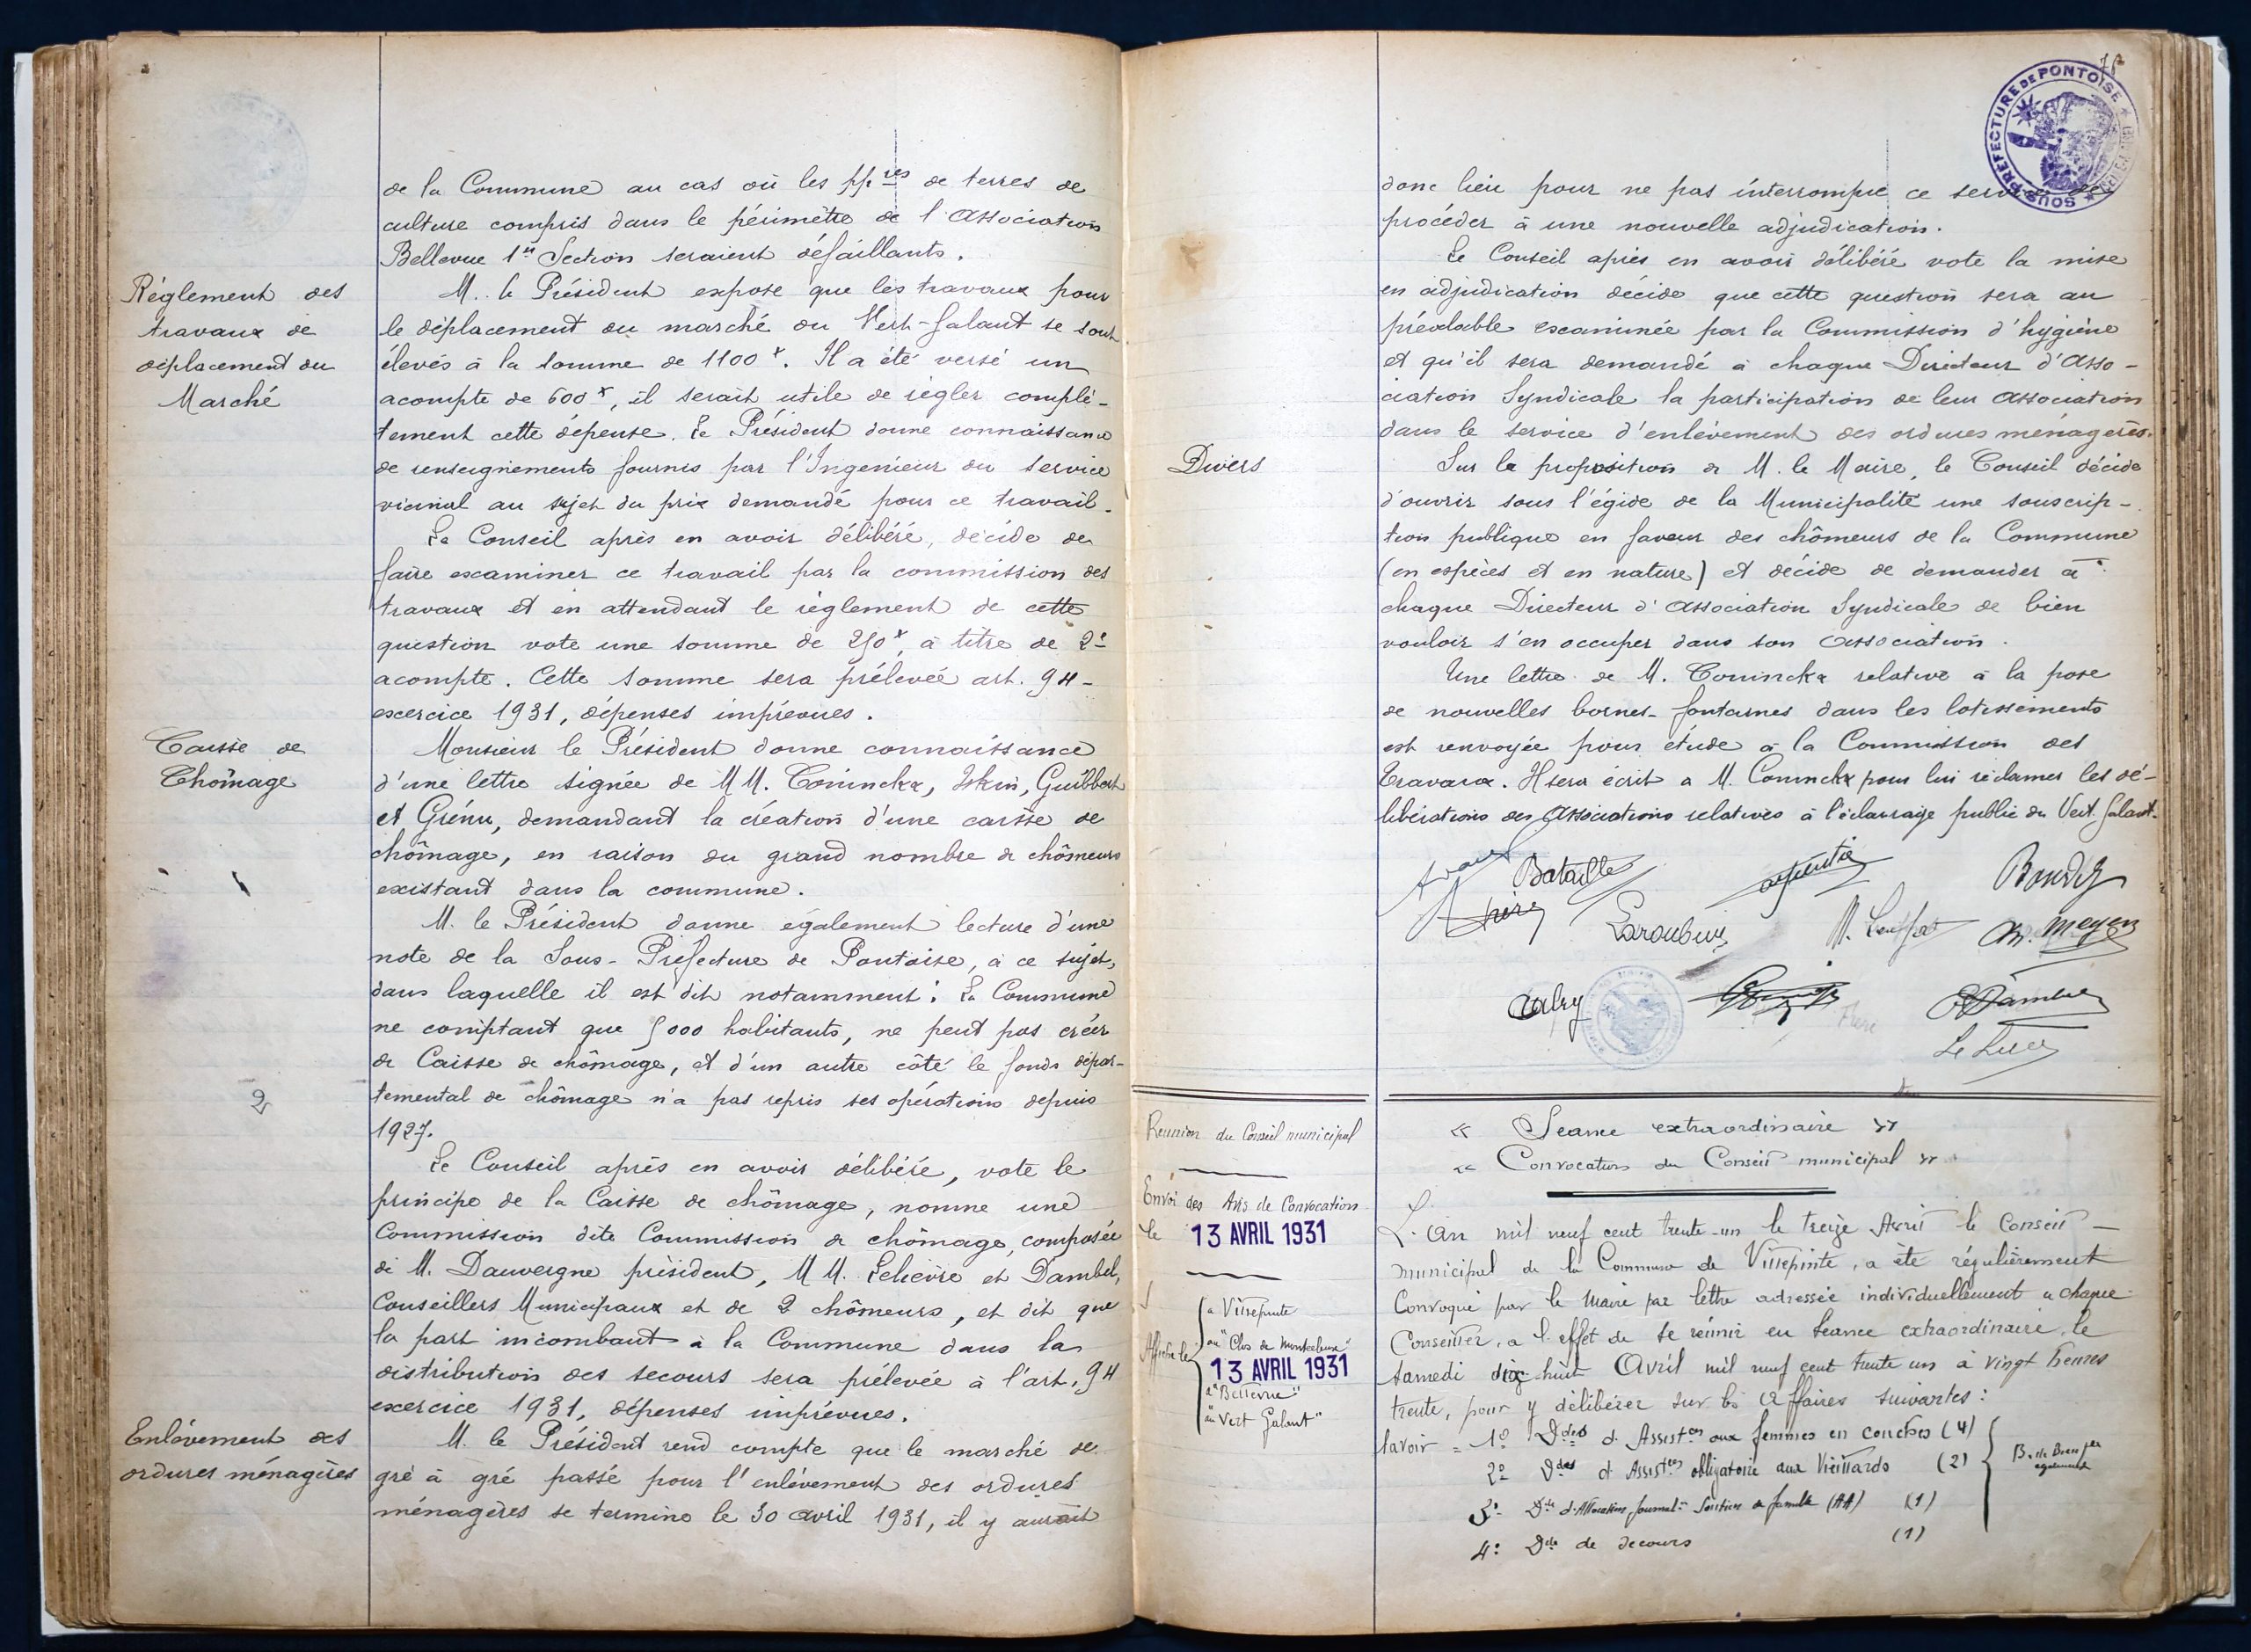 de la Commune au cas où les ppres de terres de
culture compris dans le périmètre de l'Association
Bellevue 1re Section seraient défaillants.
Réglement des
travaux de
déplacement du
Marché
M. le Président expose que les travaux pour
le déplacement du marché du Vert-Galant se sont
élevés à la somme de 1100 f. Il a été versé un
acompte de 600 f, il serait utile de règler complè-
tement cette dépense. Le Président donne connaissance
de renseignements fournis par l'Ingenieur du service
vicinal au sujet du prix demandé pour ce travail.
Le Conseil après en avoir délibéré, décide de
faire examiner ce travail par la commission des
travaux et en attendant le règlement de cette
question vote une somme de 250 f, à titre de 2e
acompte. Cette somme sera prélevée art. 94-
exercice 1931, dépenses imprévues.
Caisse de
Chômage
Monsieur le Président donne connaissance
d'une lettre signée de MM. Coninckx, Iskin, Guibbert
et Grénu, demandant la création d'une caisse de
chômage, en raison du grand nombre de chômeurs
existant dans la commune.
M. le Président donne également lecture d'une
note de la Sous-Préfecture de Pontoise, à ce sujet,
dans laquelle il est dit notamment : La Commune
ne comptant que 5000 habitants, ne peut pas créer
de Caisse de chômage, et d'un autre côté le fonds dépar-
temental de chômage n'a pas repris ses opérations depuis
1927.
2
Le Conseil après en avoir délibéré, vote le
principe de la Caisse de chômage, nomme une
Commission dite Commission de chômage, composée
de M. Dauvergne président, MM. Lelievre et Dambel,
Conseillers Municipaux et de 2 chômeurs, et dit que
la part incombant à la Commune dans la
distribution des secours sera prélevée à l'art. 94
exercice 1931, dépenses imprévues.
Enlèvement des
ordures ménagères
M. le Président rend compte que le marché de
gré à gré passé pour l'enlèvement des ordures
ménagères se termine le 30 avril 1931, il y aurait
75
SOUS-PREFECTURE DE PONTOISE
donc lieu pour ne pas interrompre ce service de
procéder à une nouvelle adjudication.
Le Conseil après en avoir délibéré vote la mise
en adjudication décide que cette question sera au
préalable examinée par la Commission d'hygiène
et qu'il sera demandé à chaque Directeur d'Asso-
ciation Syndicale la participation de leur association
dans le service d'enlèvement des ordures ménagères.
Divers
Sur la proposition de M. le Maire, le Conseil décide
d'ouvrir sous l'égide de la Municipalité une souscrip-
tion publique en faveur des chômeurs de la Commune
(en espèces et en nature) et décide de demander à
chaque Directeur d'Association Syndicale de bien
vouloir s'en occuper dans son association.
Une lettre de M. Coninckx relative à la pose
de nouvelles bornes-fontaines dans les lotissements
est renvoyée pour étude à la Commission des
Travaux. Il sera écrit a M. Coninckx pour lui réclamer les dé-
libérations des Associations relatives à l'éclairage public du Vert Galant.
Bataille
Meyer
« Seance extraordinaire »
« Convocation du Conseil municipal »
Reunion du Conseil municipal
Envoi des Avis de Convocations
le 13 AVRIL 1931
Affiché le
a Villepinte
au "Clos de Montceleux"
13 AVRIL 1931
a "Bellevue"
au "Vert Galant"
L'An mil neuf cent trente-un le treize Avril le Conseil
municipal de la Commune de Villepinte, a été régulièrement
Convoqué par le Maire par lettre adressée individuellement a chaque
Conseiller, a l'effet de se réunir en seance extraordinaire, le
samedi dix-huit Avril mil neuf cent trente un à vingt heures
trente, pour y délibérer sur les affaires suivantes :
savoir = 1° Ddes d'Assistces aux femmes en couches (4)
2° Ddes d'Assistces obligatoire aux Vieillards (2)
3° Dde d'Allocation journal. Soutien de famille (AA) (1)
4° Dde de Secours (1)